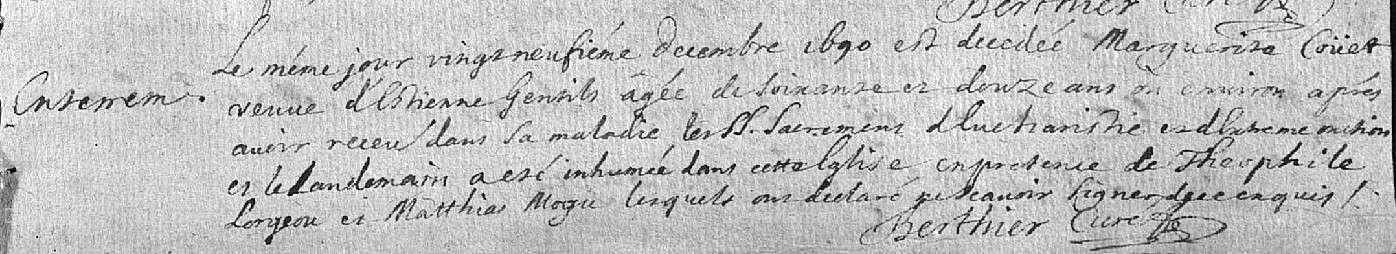 Berthier Curé
Le méme jour vingt neufiéme decembre 1690 est decedeé Marguerite Coüet
Enterrem.
veuve d'Estienne Gentils agée de soixante et douze ans ou environ aprés
avoir receu dans sa maladie les SS. Sacremens d'Eucharistie et d'Extreme onction
et le Landemain a esté inhumée dans cette Eglise en presence de Theophile
Lorgeou et Matthias Mogu lesquels ont declaré ne scavoir signer de ce enquis /.
Berthier Curé